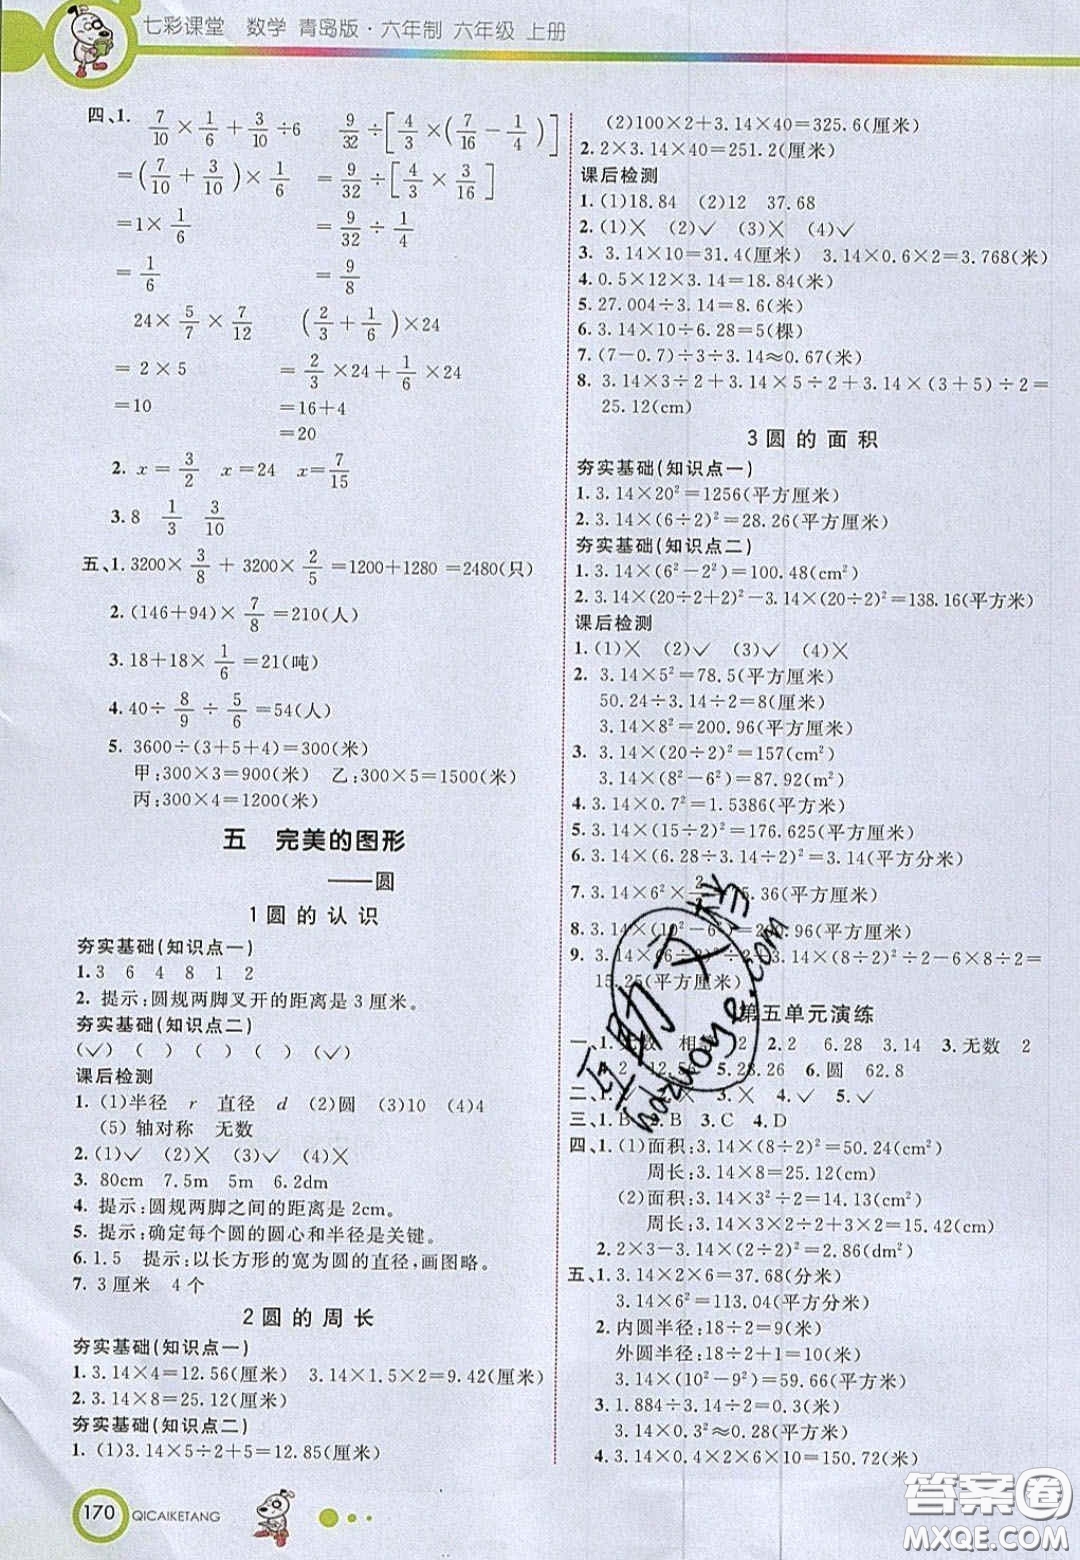 七彩课堂 数学 青岛版·六年制 六年级 上册
四、1. 7/10×1/6+3/10÷6 9/32÷[4/3×(7/16-1/4)]
=(7/10+3/10)×1/6 =9/32÷[4/3×3/16]
=1×1/6 =9/32÷1/4
=1/6 =9/8
24×5/7×7/12 (2/3+1/6)×24
=2×5 =2/3×24+1/6×24
=10 =16+4
=20
2. x=3/2 x=24 x=7/15
3.8 1/3 3/10
五、1.3200×3/8+3200×2/5=1200+1280=2480(只)
2.(146+94)×7/8=210(人)
3.18+18×1/6=21(吨)
4.40÷8/9÷5/6=54(人)
5. 3600÷(3+5+4)=300(米)
甲:300×3=900(米) 乙:300×5=1500(米)
丙:300×4=1200(米)
五 完美的图形
——圆
1圆的认识
夯实基础(知识点一)
1.3 6 4 8 1 2
2. 提示:圆规两脚叉开的距离是3厘米。
夯实基础(知识点二)
(✓) ( ) ( ) ( ) (✓)
课后检测
1. (1)半径 r 直径 d (2)圆 (3)2 (4)4
(5) 轴对称 无数
2. (1)✓ (2)╳ (3)✓ (4)╳
3. 80cm 7.5m 5m 6.2dm
4. 提示:圆规两脚之间的距离是2cm。
5. 提示:确定每个圆的圆心和半径是关键。
6.1.5 提示:以长方形的宽为圆的直径,画图略。
7.3厘米 4个
2圆的周长
夯实基础(知识点一)
1.3.14×4=12.56(厘米) 3.14×1.5×2=9.42(厘米)
2.3.14×8=25.12(厘米)
夯实基础(知识点二)
1. (1)3.14×5÷2+5=12.85(厘米)
170 QICAIKETANG
(2)100×2+3.14×40=325.6(厘米)
2.2×3.14×40=251.2(厘米)
课后检测
1. (1)18.84 (2)12 37.68
2. (1)╳ (2)✓ (3)╳ (4)✓
3. 3.14×10=31.4(厘米) 3.14×0.6×2=3.768(米)
4. 0.5×12×3.14=18.84(米)
5. 27.004÷3.14=8.6(米)
6. 3.14×10÷6.28=5(棵)
7. (7-0.7)÷3÷3.14≈0.67(米)
8. 3.14×3÷2+3.14×5÷2+3.14×(3+5)÷2=
25.12(cm)
3圆的面积
夯实基础(知识点一)
1.3.14×20²=1256(平方厘米)
2.3.14×(6÷2)²=28.26(平方厘米)
夯实基础(知识点二)
1.3.14×(6²-2²)=100.48(cm²)
2. 3.14×(20÷2+2)²-3.14×(20÷2)²=138.16(cm²)
课后检测
1. (1)╳ (2)✓ (3)✓ (4)╳
2. 3.14×5²=78.5(平方厘米)
50.24÷3.14÷2=8(厘米)
3.14×8²=200.96(平方厘米)
3. 3.14×(20÷2)²÷2=157(cm²)
3.14×(8²-6²)=87.92(m²)
4. 3.14×0.7²=1.5386(平方米)
5. 3.14×(15÷2)²=176.625(平方厘米)
6. 3.14×(6.28÷3.14÷2)²=3.14(平方分米)
7. 3.14×6²×2 5.36(平方厘米)
8. 3.14×(10²-6²)=200.96(平方米)
9. 3.14×(6÷2)²÷2+3.14×(8÷2)²÷2-6×8÷2=
15.25(平方厘米)
第五单元演练
一、1.无数 相等 2 2.2 6.28 3.14 3.无数 2
4.2 5.28.26 6.圆 62.8
二、1. 3.╳ 4.✓ 5.✓
三、1.B 2.B 3.C 4.D
四、1.(1)面积:3.14×(8÷2)²=50.24(cm²)
周长:3.14×8=25.12(cm)
(2)面积:3.14×3²÷2=14.13(cm²)
周长:3.14×3×2÷2+3×2=15.42(cm)
2.2×3-3.14×(2÷2)²=2.86(dm²)
五、1.3.14×2×6=37.68(分米)
3.14×6²=113.04(平方分米)
2. 内圆半径:18÷2=9(米)
外圆半径:18÷2+1=10(米)
3.14×(10²-9²)=59.66(平方米)
3. 1.884÷3.14÷2=0.3(米)
3.14×0.3²≈0.28(平方米)
4. 3.14×2×4+3.14×2×6×10=150.72(米)
互助文档
hdzuoye.com
答案圈
MXQE.COM